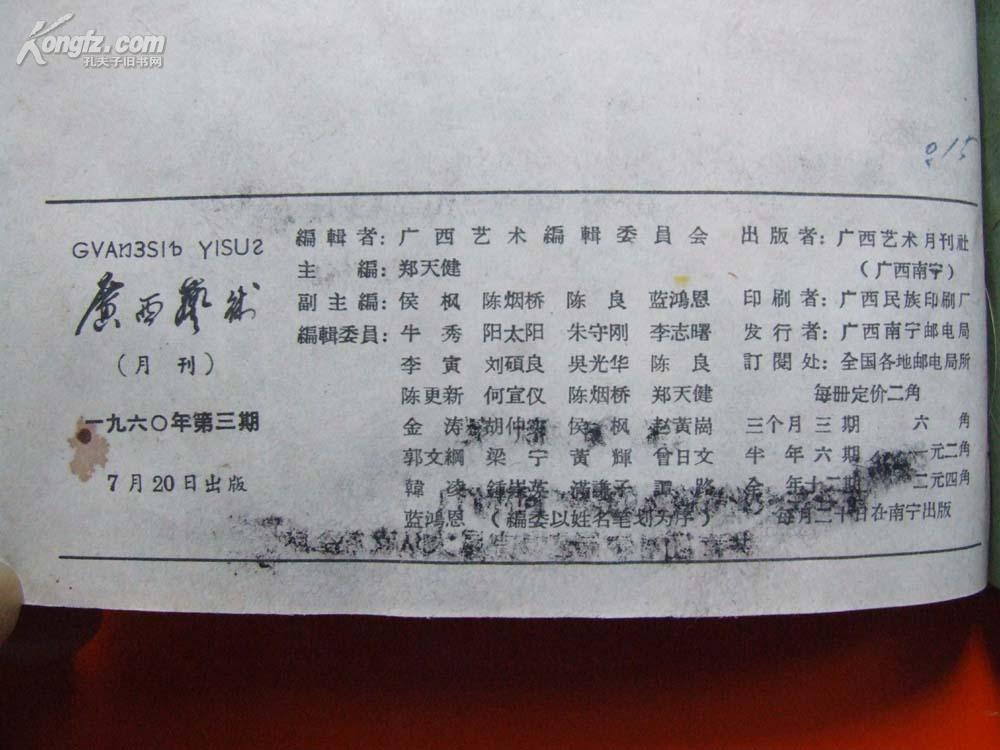 Kongfz.com
孔夫子旧书网
015
GVAꞐƷSIЪ YISUƧ
廣西藝術
(月刊)
一九六〇年第三期
7月20日出版
編輯者：广西艺术編輯委員会
主 編：郑天健
副主編：侯 枫 陈烟桥 陈 良 蓝鴻恩
編輯委員：牛 秀 阳太阳 朱守刚 李志曙
李 寅 刘碩良 吳光华 陈 良
陈更新 何宣仪 陈烟桥 郑天健
金 涛 胡仲实 侯 枫 赵黃崗
郭文綱 梁 宁 黃 輝 曾日文
韓 凌 鍾
蓝鴻恩 (編委以姓名笔划为序)
出版者：广西艺术月刊社
(广西南宁)
印刷者：广西民族印刷厂
发行者：广西南宁邮电局
訂閱处：全国各地邮电局所
每册定价二角
三个月三期 六 角
半年六期 一元二角
全年十二期 二元四角
每月二十日在南宁出版